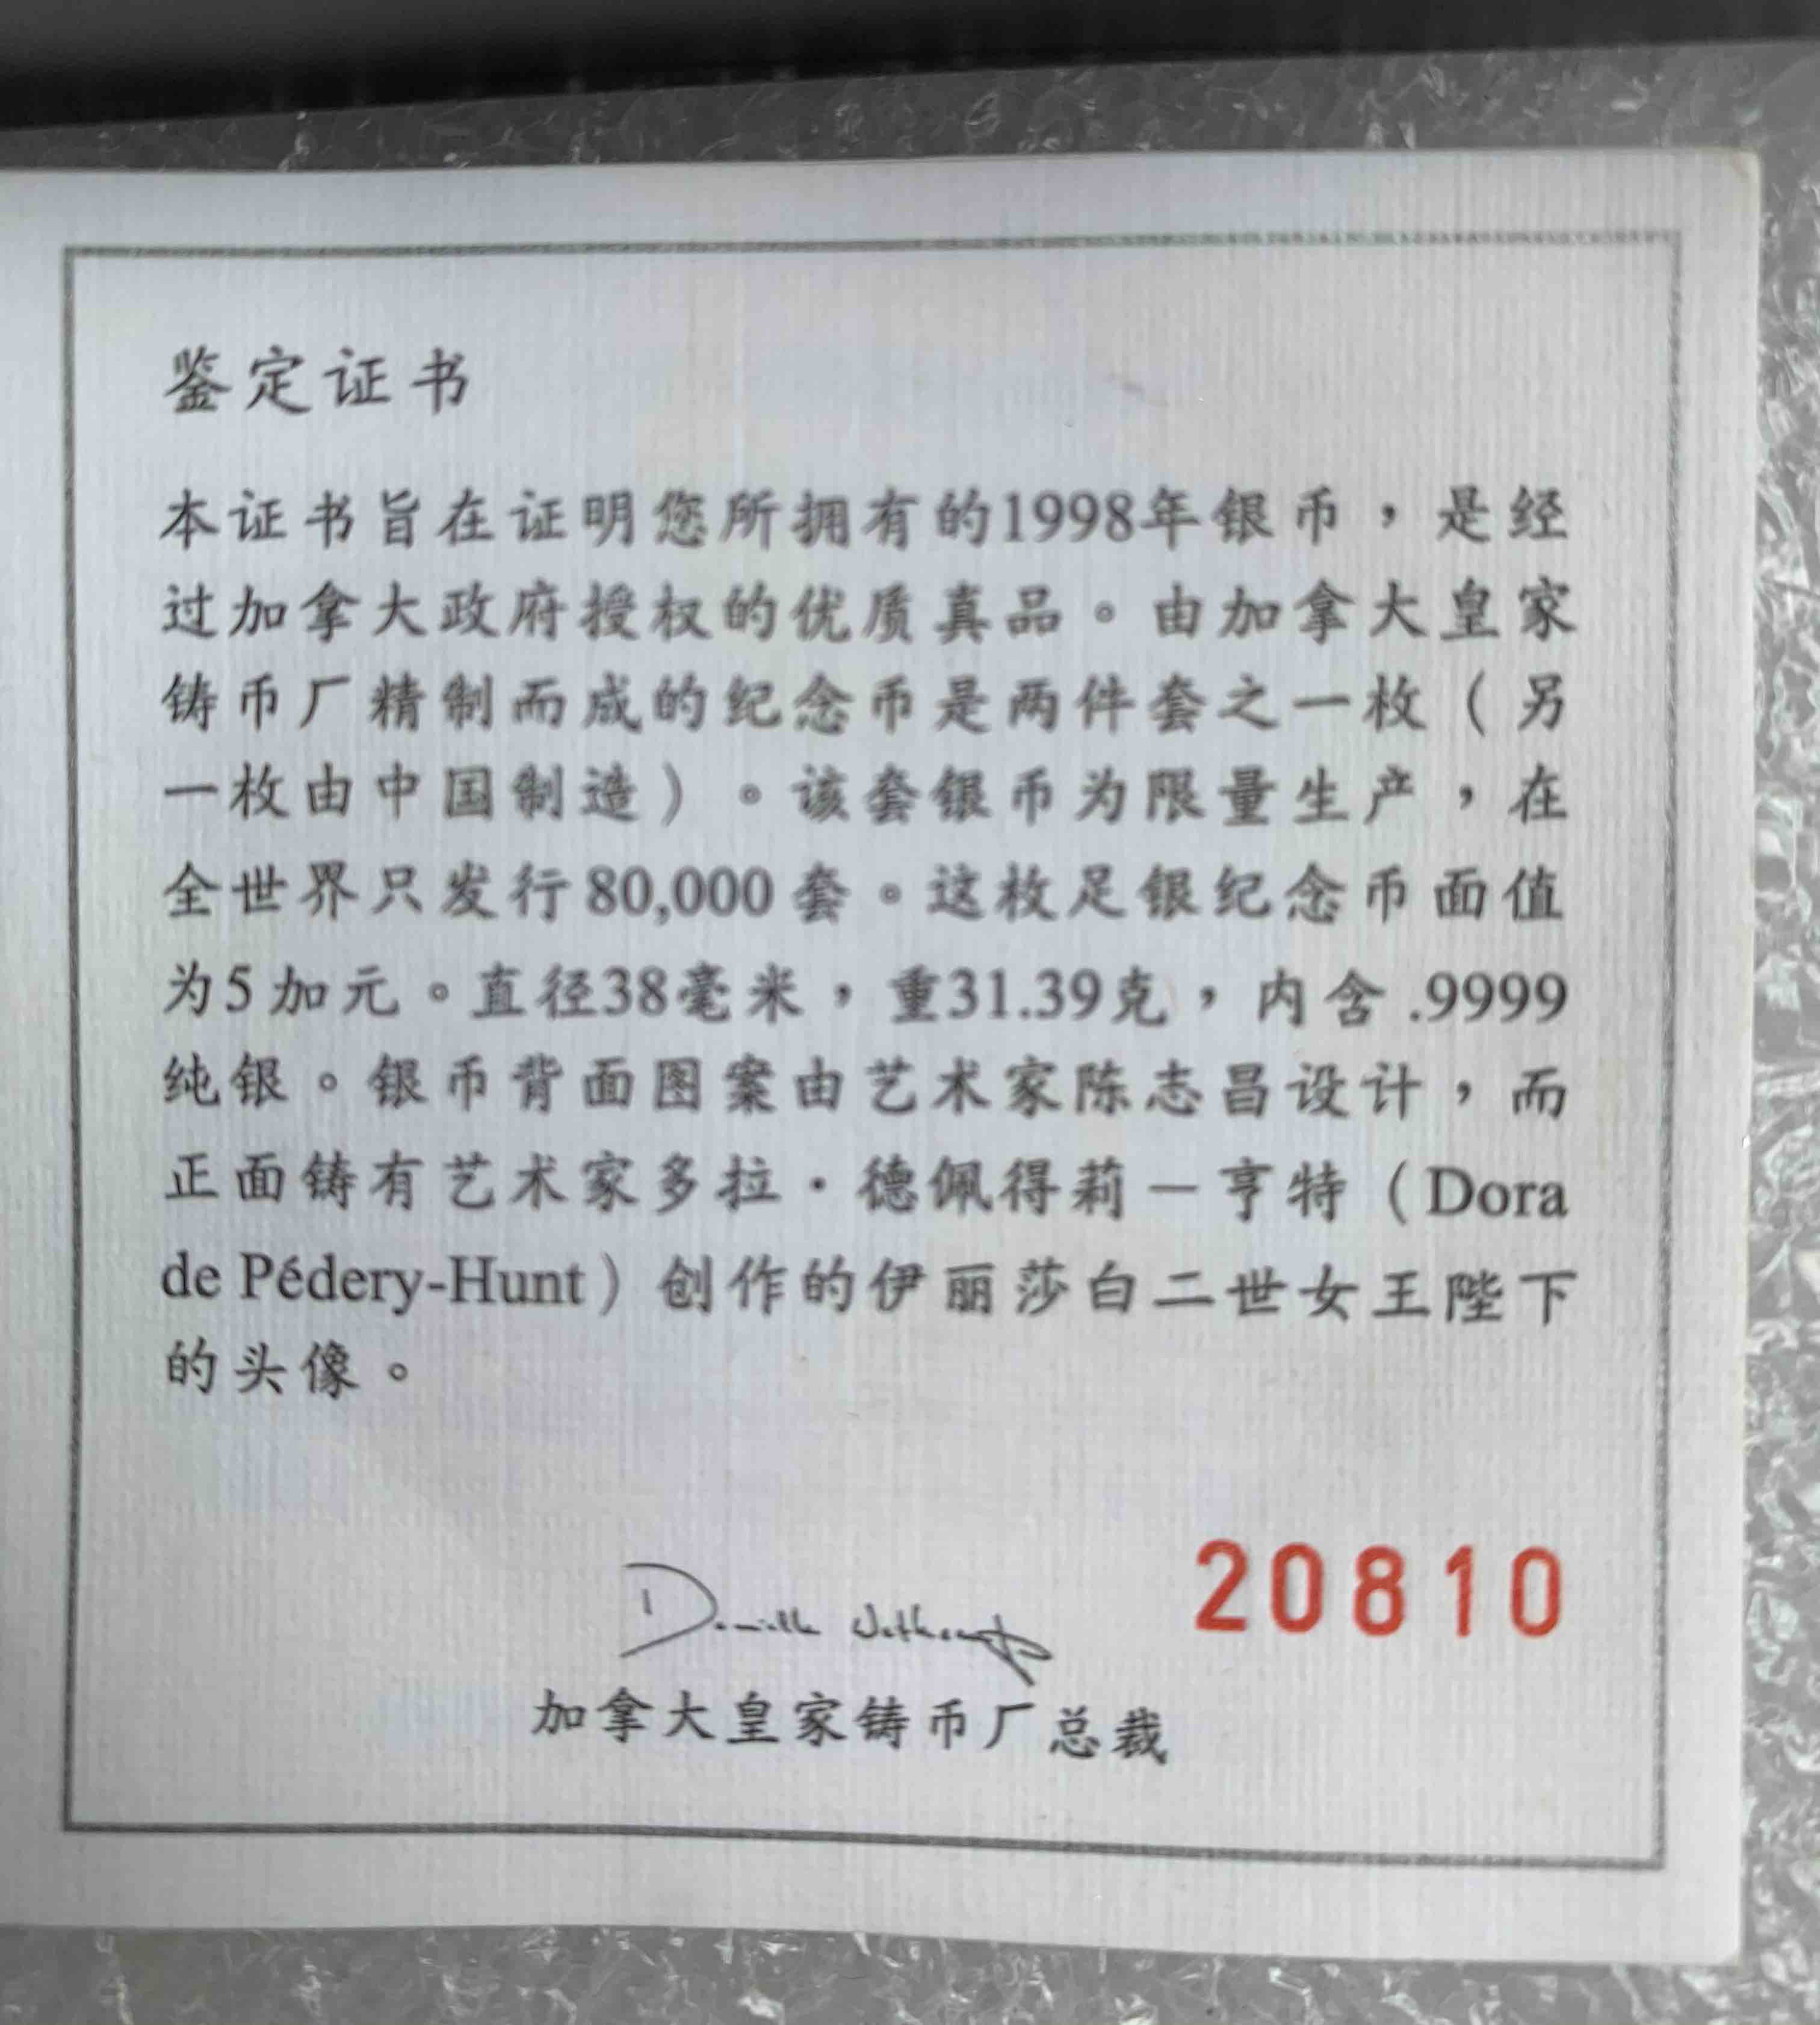 鉴定证书
本证书旨在证明您所拥有的1998年银币，是经
过加拿大政府授权的优质真品。由加拿大皇家
铸币厂精制而成的纪念币是两件套之一枚（另
一枚由中国制造）。该套银币为限量生产，在
全世界只发行80,000套。这枚足银纪念币面值
为5加元。直径38毫米，重31.39克，内含.9999
纯银。银币背面图案由艺术家陈志昌设计，而
正面铸有艺术家多拉·德佩得莉－亨特（Dora
de Pédery-Hunt）创作的伊丽莎白二世女王陛下
的头像。
20810
加拿大皇家铸币厂总裁